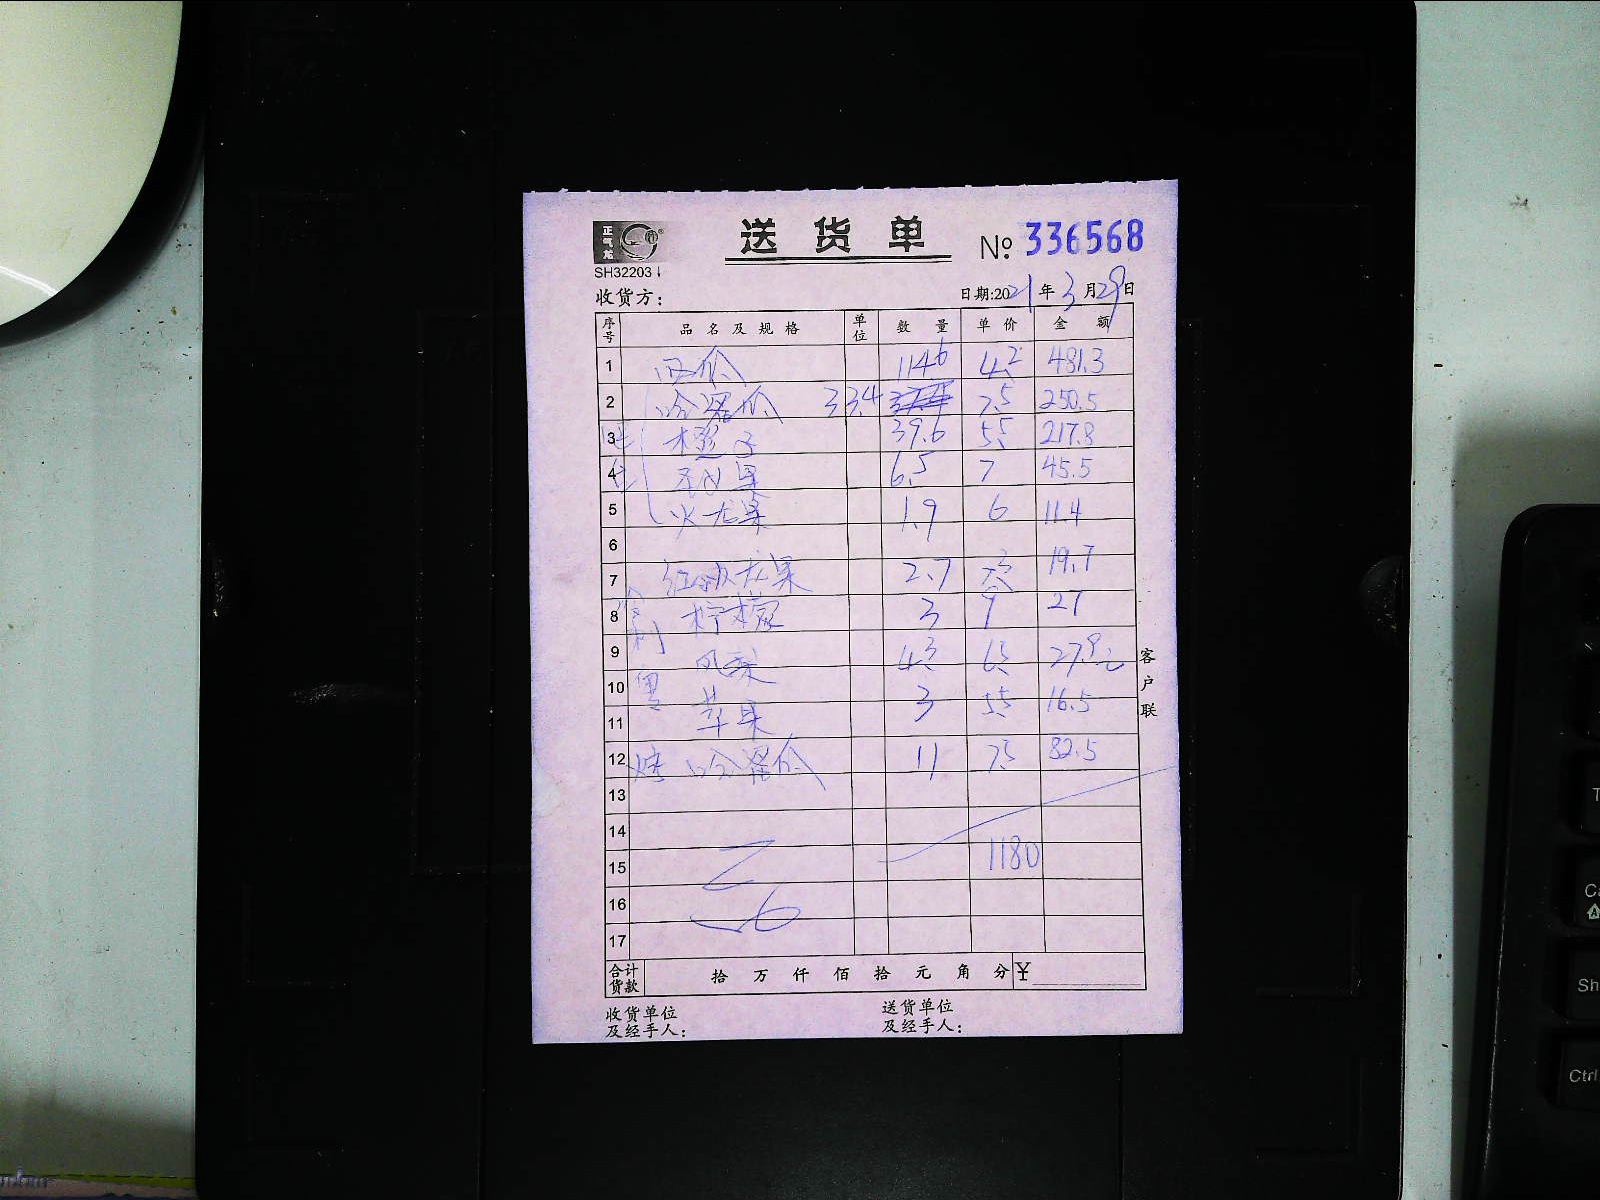 正气龙
送货单
№ 336568
SH32203
收货方：
日期:2021年3月29日
序号 品名及规格 单位 数量 单价 金额
1 西瓜 114.6 4.2 481.3
2 哈密瓜 33.4 7.5 250.5
3 橙子 39.6 5.5 217.8
4 6.5 7 45.5
5 火龙果 1.9 6 11.4
6
7 红火龙果 2.7 7.3 19.7
8 柠檬 3 9 27
9 凤梨 4.3 6.5 27.9元
10
11 苹果 3 5.5 16.5
12 烤 哈密瓜 11 7.5 82.5
13
14
15 1180
16
17
合计货款 拾万仟佰拾元角分 ¥
收货单位及经手人：
送货单位及经手人：
客户联
T
Ca
Sh
Ctrl